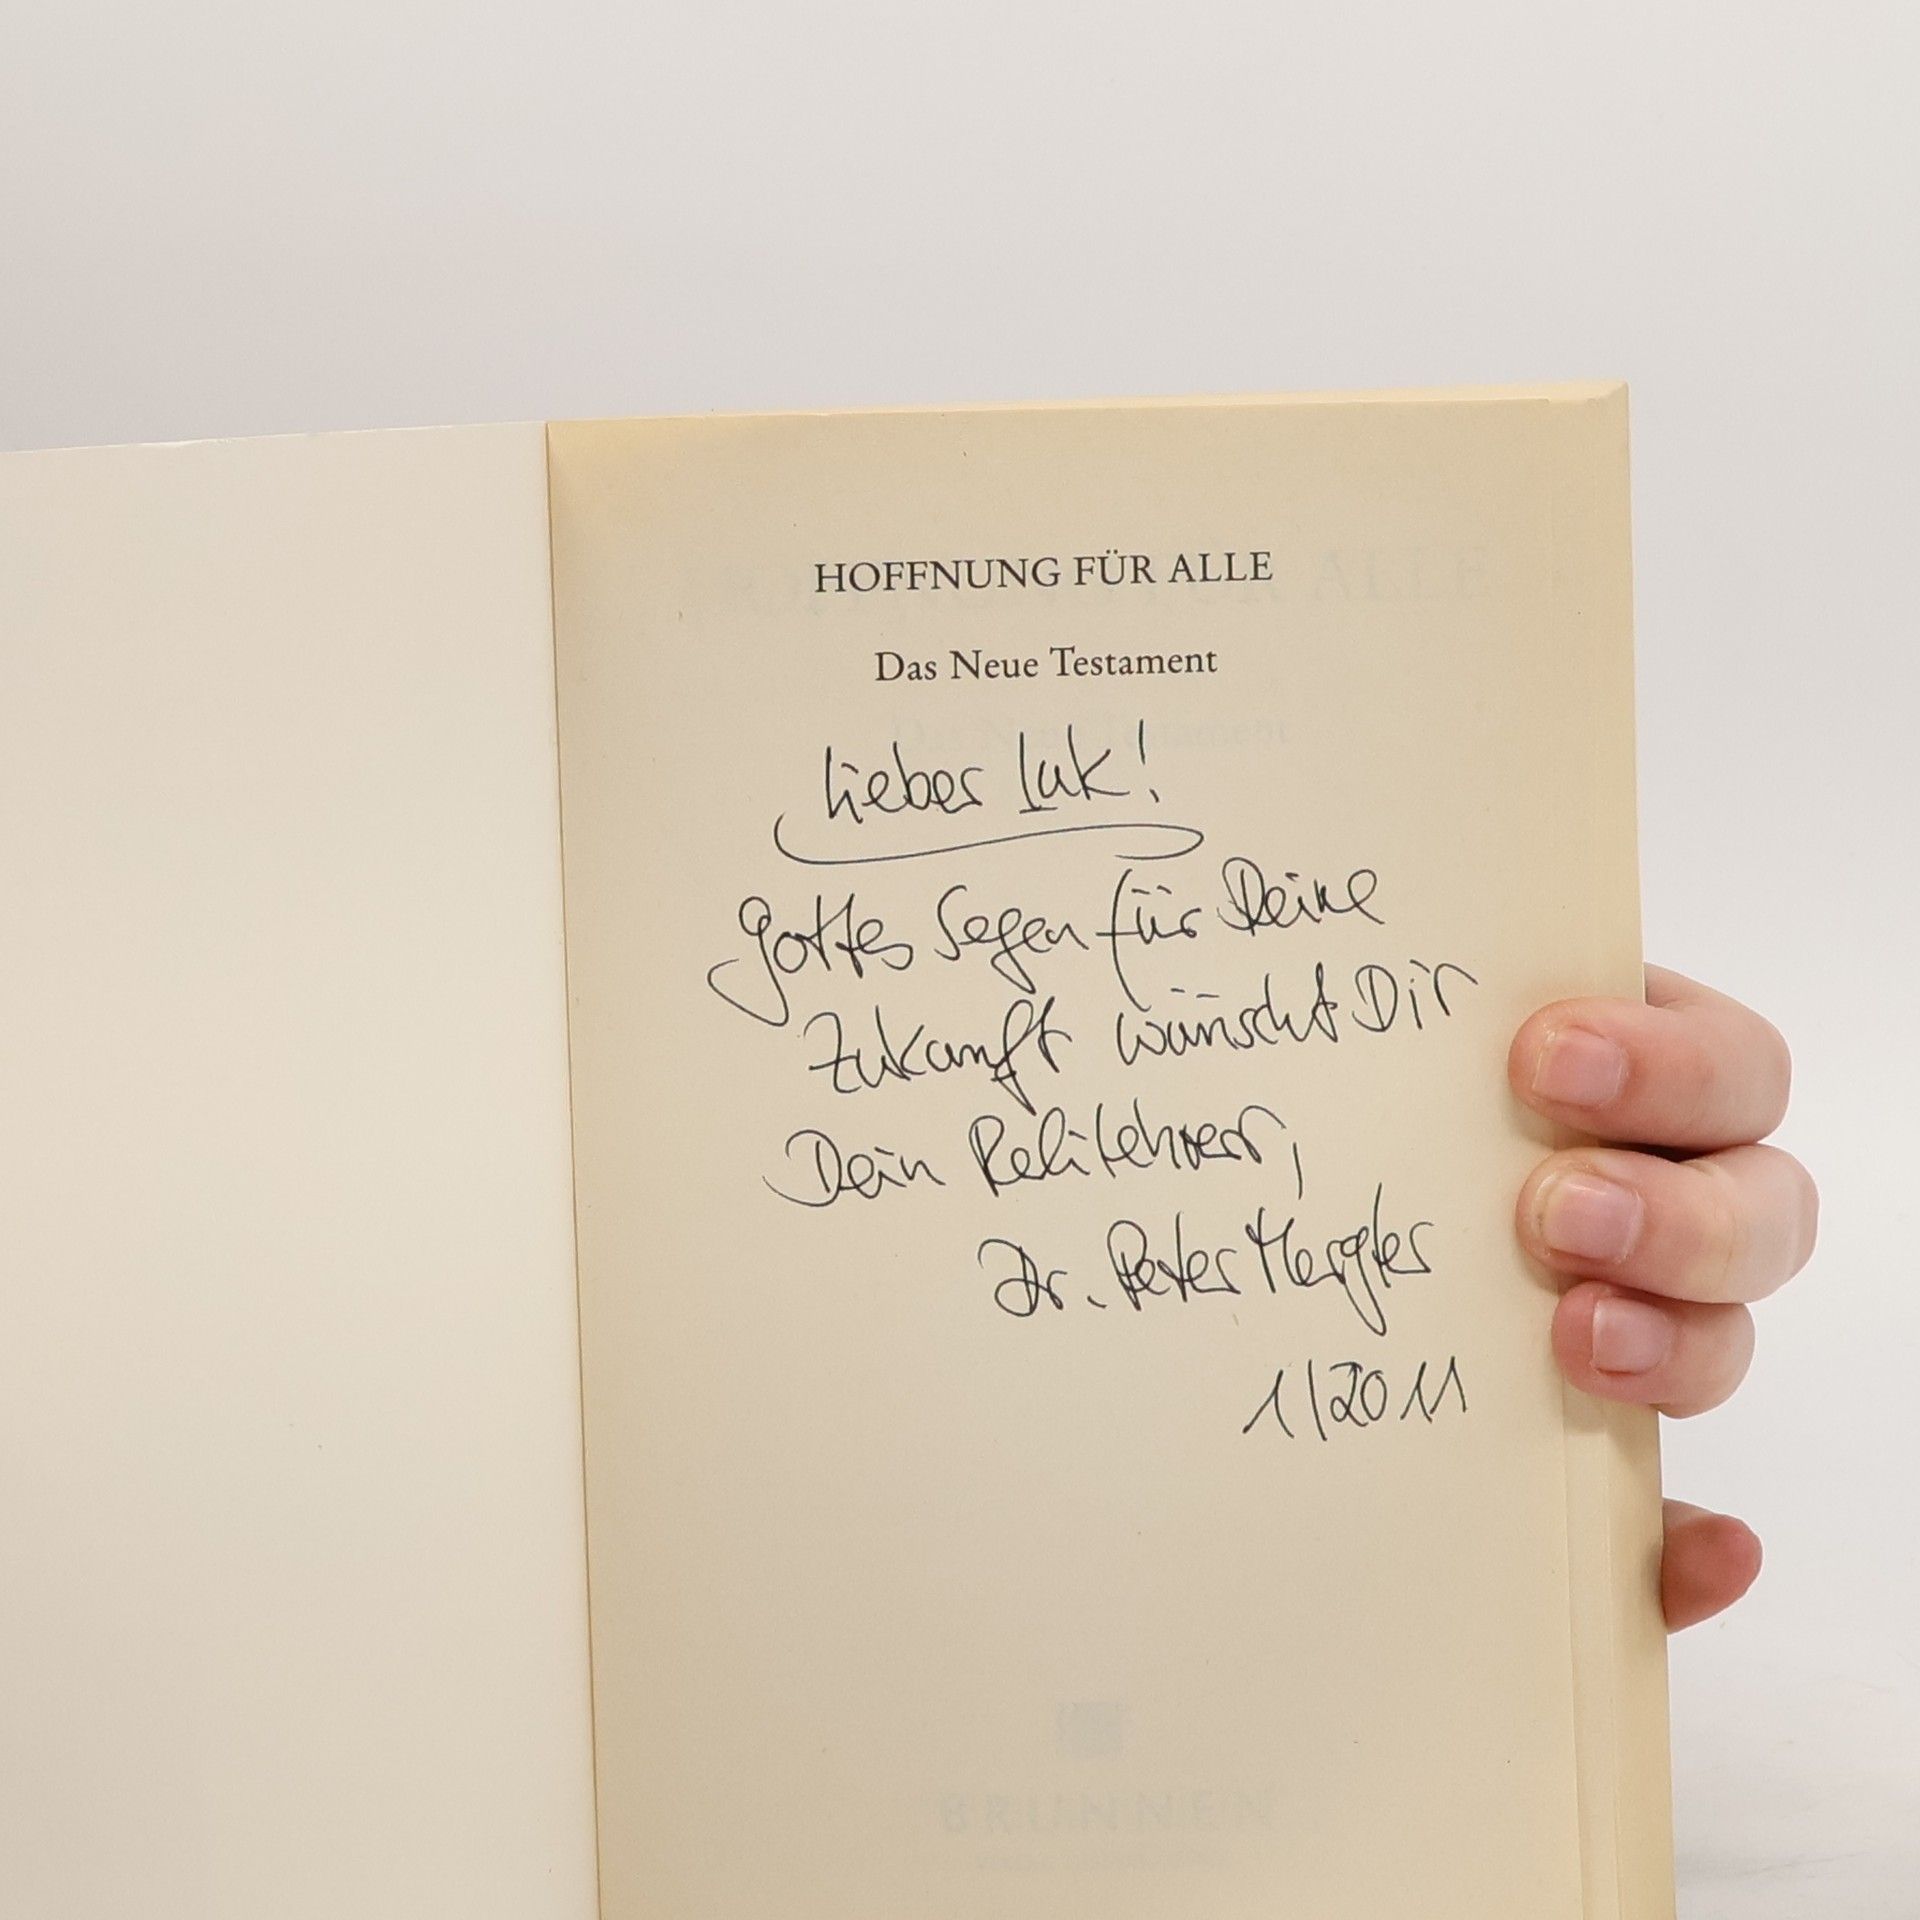 HOFFNUNG FÜR ALLE
Das Neue Testament
Lieber Luk!
Gottes Segen für Deine
Zukunft wünscht Dir
Dein Relilehrer,
Dr. Peter Mergler
1/2011
BRUNNEN